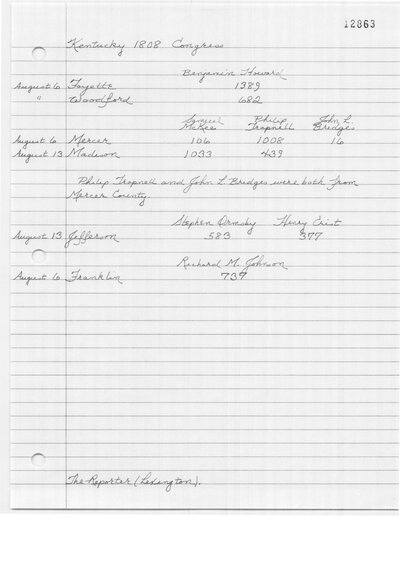 12863
Kentucky 1808 Congress
Benjamin Howard
August 6 Fayette 1389
" Woodford 682
Samuel McKee Philip Trapnell John L. Bridges
August 6 Mercer 106 1008 16
August 13 Madison 1033 439
Philip Trapnell and John L. Bridges were both from
Mercer County.
Stephen Ormsby Henry Crist
August 13 Jefferson 583 377
Richard M. Johnson
August 6 Franklin 737
The Reporter (Lexington).